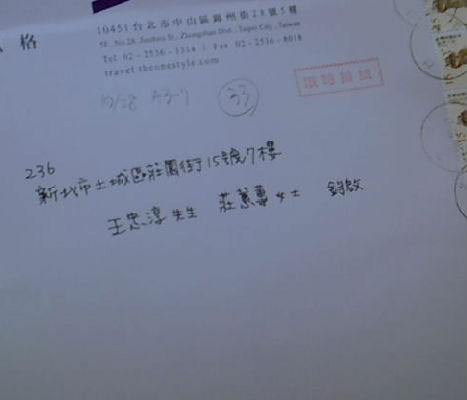 格
10451台北市中山區錦州街28號5樓
5F., No.28, Jinzhou St., Zhongshan Dist., Taipei City, Taiwan
Tel 02 - 2536 - 1314 | Fax 02 - 2536 - 8018
travel.theonestyle.com
10/28 A3-7 33
236
新北市土城區莊園街15號7樓
王忠淳先生 莊蕙專女士 鈞啟